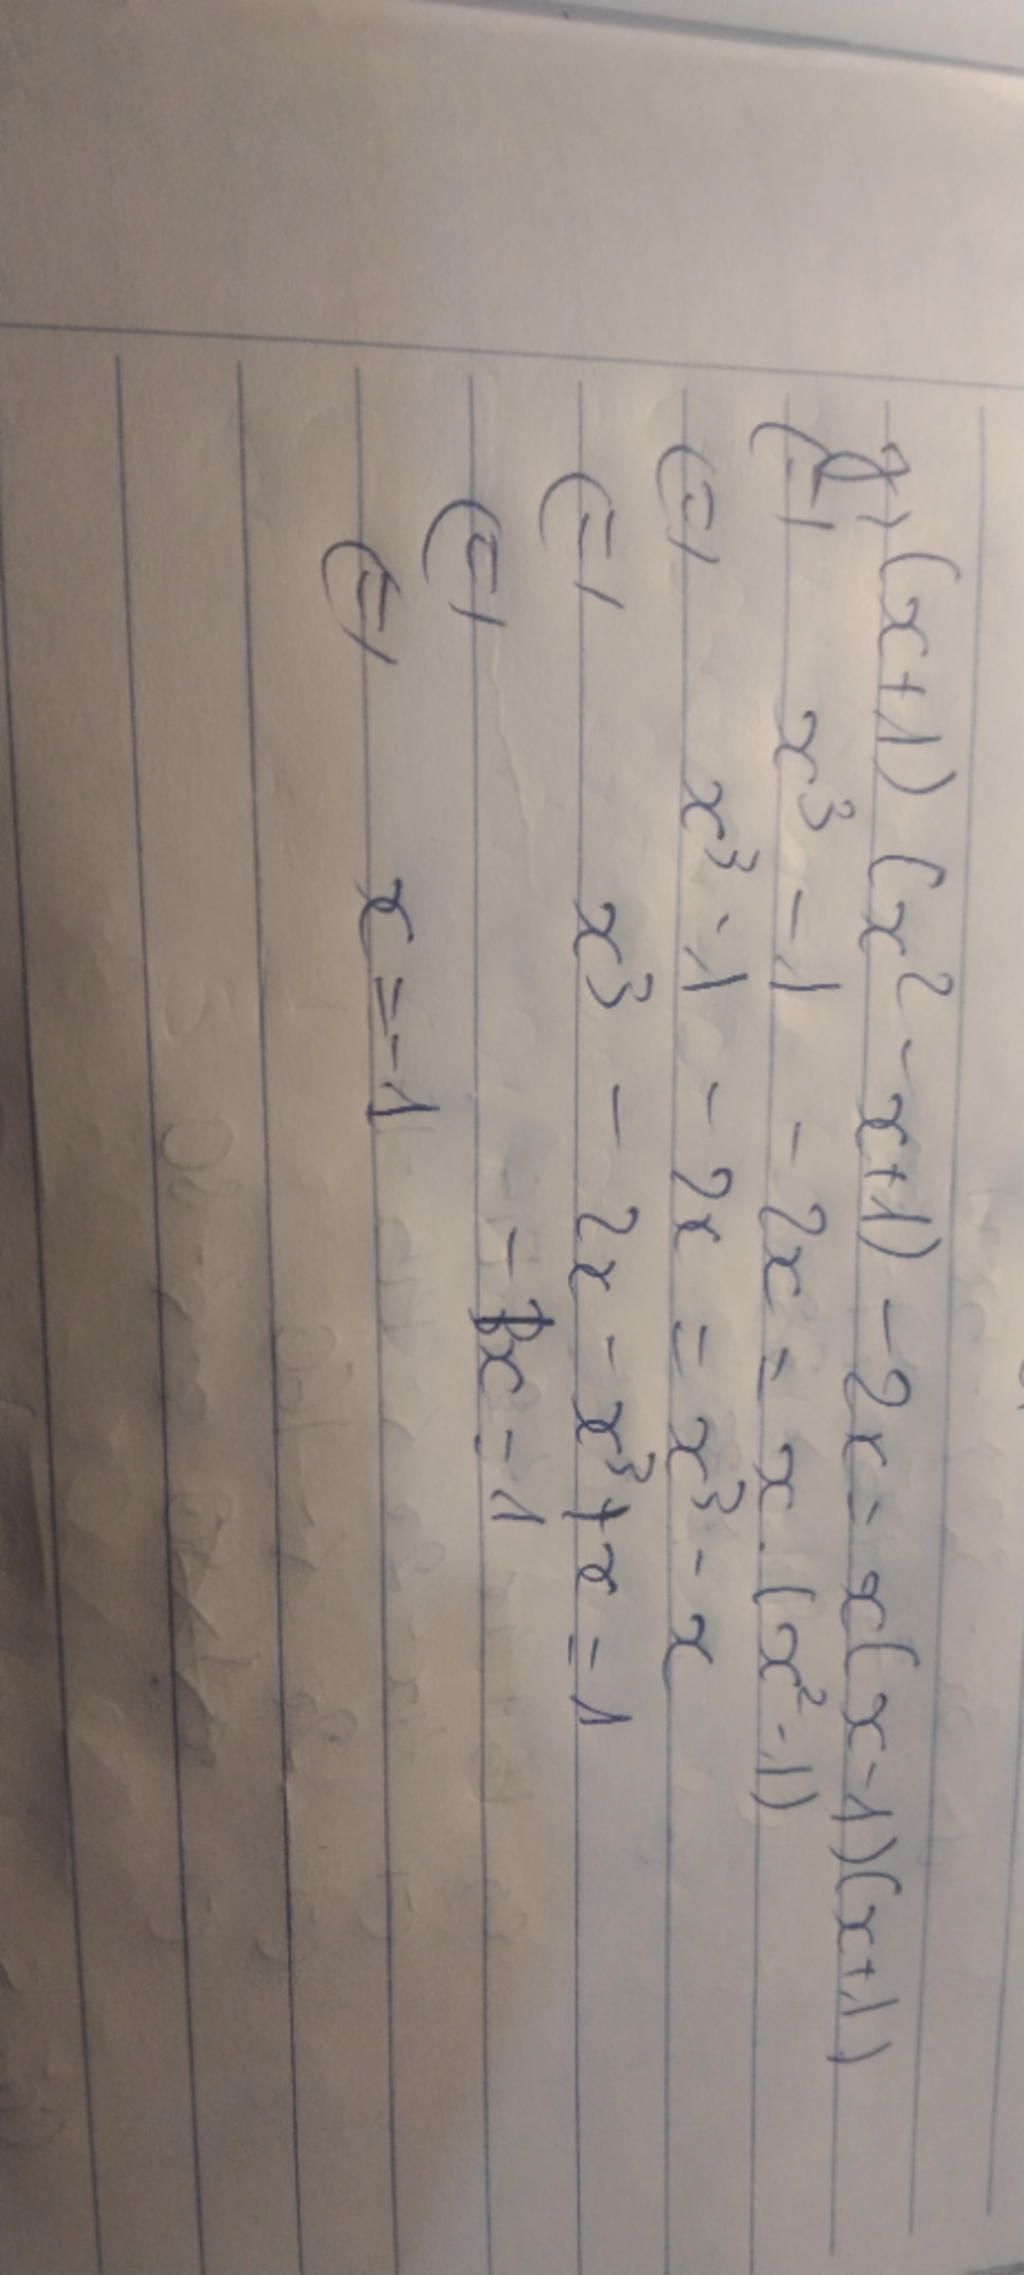 g) (x+1) (x² - x+1) - 2x = x(x-1)(x+1)
(=) x³ - 1 - 2x = x . (x² - 1)
(=) x³ - 1 - 2x = x³ - x
(=) x³ - 2x - x³ + x = 1
(=) - x = 1
(=) x = -1